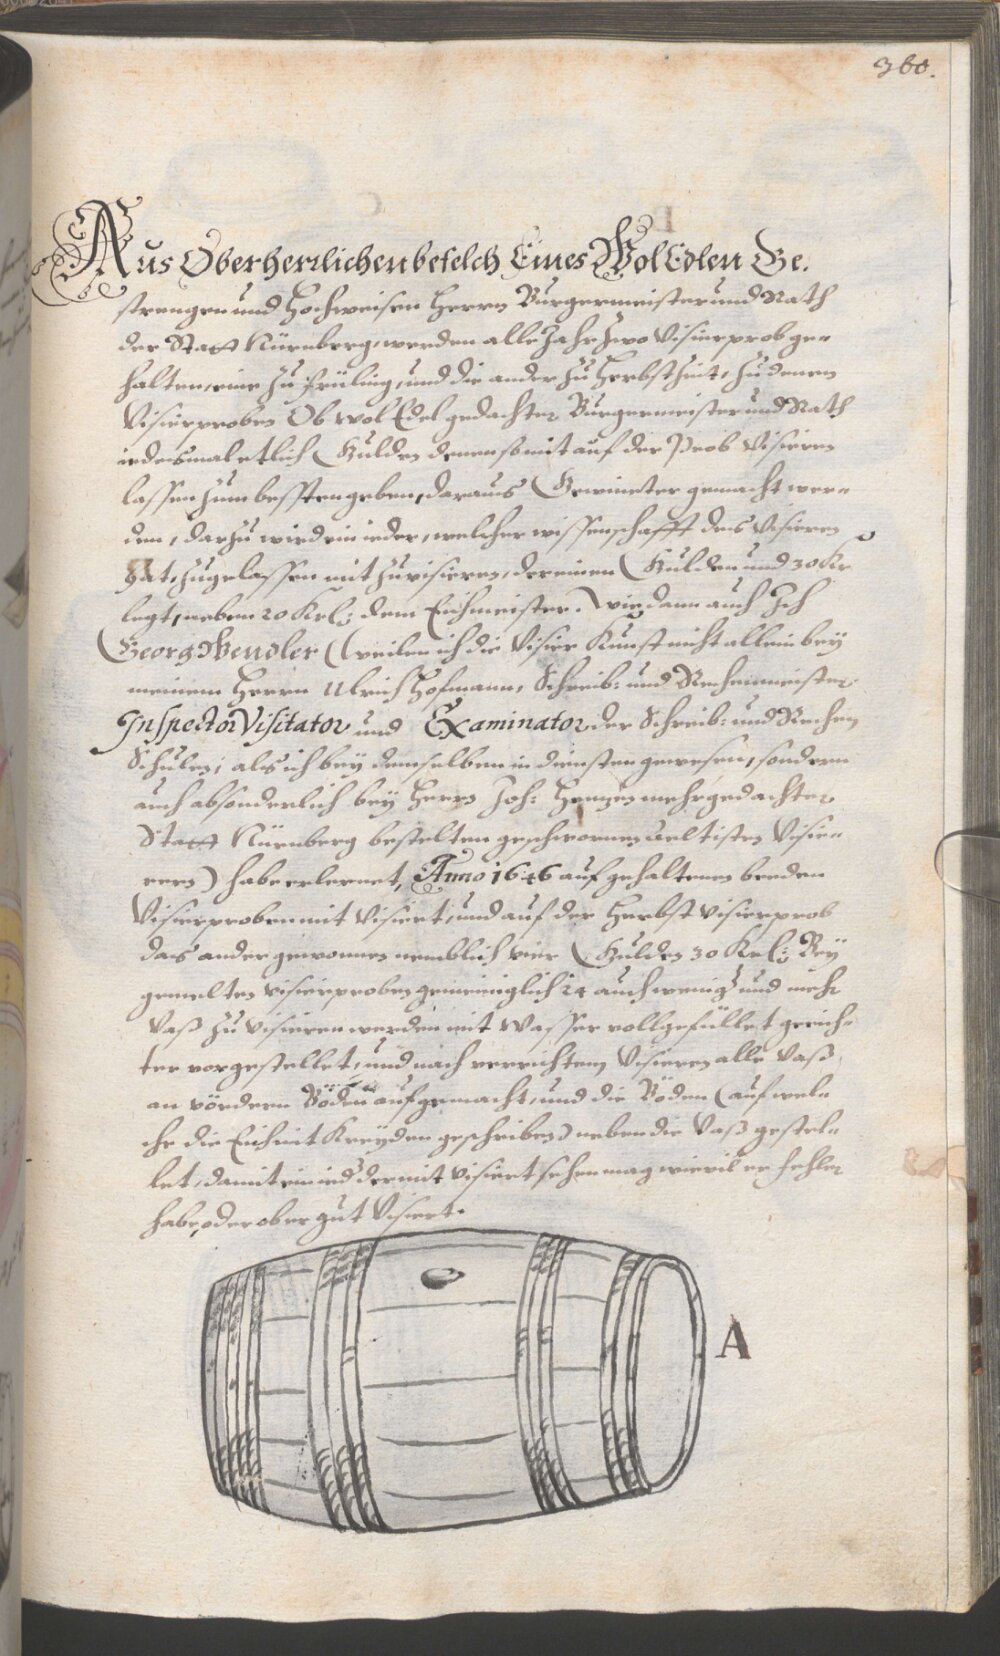 360.
Aus Oberherrlichen befelch Eines Wol Edlen Ge.
strengen und Hochweisen Herrn Burgermeister und Rath
der Statt Nürnberg, werden alle Jahr zwo Visierprob ge-
halten, eine zu früling, und die ander zu Herbstzeit, zu denen
Visierproben Ob wol Edel gedachter Burgermeister und Rath
iedesmal etlich Gulden denen so mit auf der Prob Visieren
lassen zum bessten geben, daraus Gewineter gemacht wer-
den, darzu wird ein ieder, welcher wissenschafft des Visieren
hat, zugelassen mit zu visieren, der einen Gulden und 30 Kr
legt, neben 20 Kr: dem Eichmeister. Wie dann auch Ich
Georg Wendler (weilen ich die Visier Kunst nicht allein bey
meinem Herrn Ulrich Hofmann, Schreib: und Rechenmeister
Inspector Visitator und Examinator der Schreib: und Rechen
Schulen; als ich bey demselben in diensten gewesen, sondern
auch absonderlich bey Herrn Joh: mehrgedachter
Statt Nürnberg bestelten geschwornen aeltisten Visie-
rern) habe erlernet, Anno 1646 auf gehaltenen beeden
Visierproben mit Visiert, und auf der Herbst Visierprob
das ander gewonnen nemblich vier Gulden 30 Kr: Bey
gemelten visierproben gemeiniglich 24 auch wenig und mehr
Vaß zu Visieren werden mit Wasser vollgefüllet geeich-
ter vorgestellet, und nach verrichtem Visieren alle Vaß
an vördern Böden aufgemacht, und die Böden (auf wel-
che die Eich mit Kreyden geschrieben) neben die Vaß gestel-
let, damit ein ied der mit visiert sehen mag wieviel er fehler
habe, oder ob er gut Visiert.
A